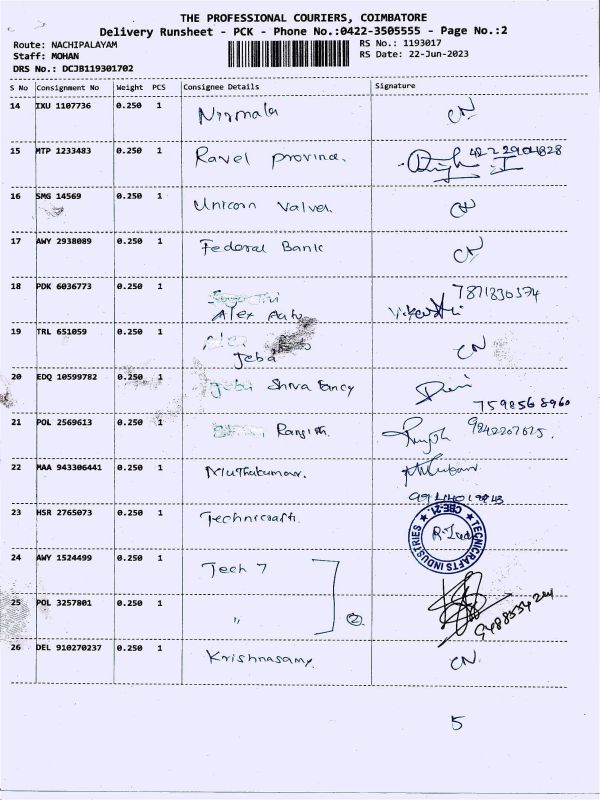 THE PROFESSIONAL COURIERS, COIMBATORE
Delivery Runsheet - PCK - Phone No.:0422-3505555 - Page No.:2
Route: NACHIPALAYAM RS No.: 1193017
Staff: MOHAN RS Date: 22-Jun-2023
DRS No.: DCJB119301702
S No Consignment No Weight PCS Consignee Details Signature
14 IXU 1107736 0.250 1 Nirmala CN
15 MTP 1233483 0.250 1 Ravel
16 SMG 14569 0.250 1 Unicorn Valves CN
17 AWY 2938089 0.250 1 Federal Bank CN
18 PDK 6036773 0.250 1 7871830374
Alex
19 TRL 651059 0.250 1 CN
Jeba
20 EDQ 10599782 0.250 1 Jeba Shiva Fancy
7598568960
21 POL 2569613 0.250 1 Ranjith 9842207625
22 MAA 943306441 0.250 1 Muthukumar
23 HSR 2765073 0.250 1 Technicraft TECNICRAFTS INDUSTRIES CBE-21.
24 AWY 1524499 0.250 1 Tech 7
25 POL 3257801 0.250 1 " 2
26 DEL 910270237 0.250 1 Krishnasamy CN
5